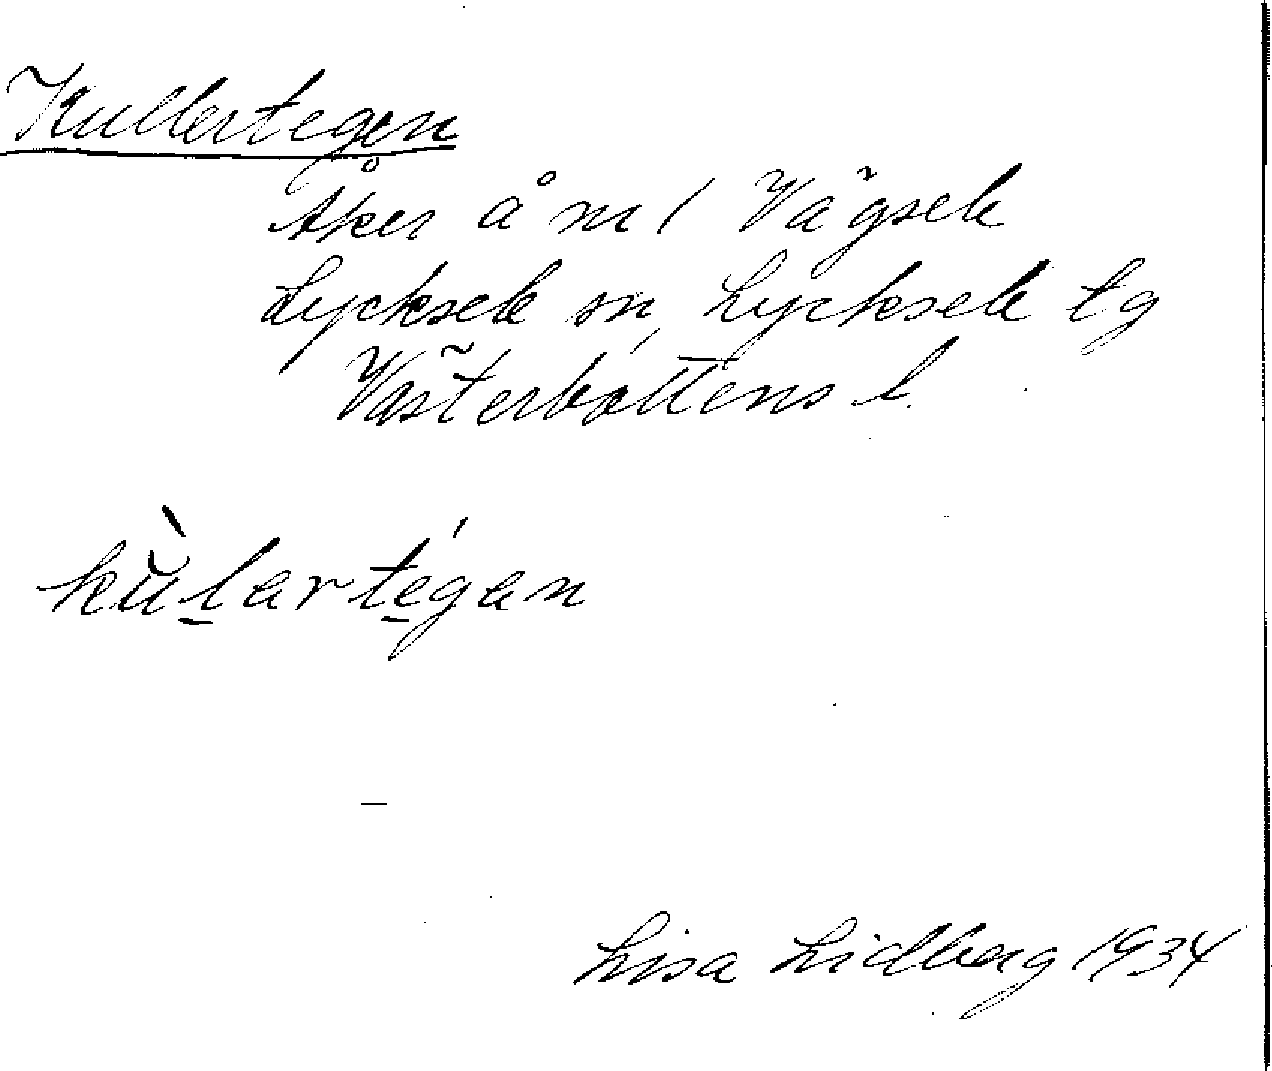 Kullertegen
Åker å m/ Vägsele
Lycksele sn, Lycksele tg
Västerbottens l.
kùlartégan
Lisa Lidberg 1934